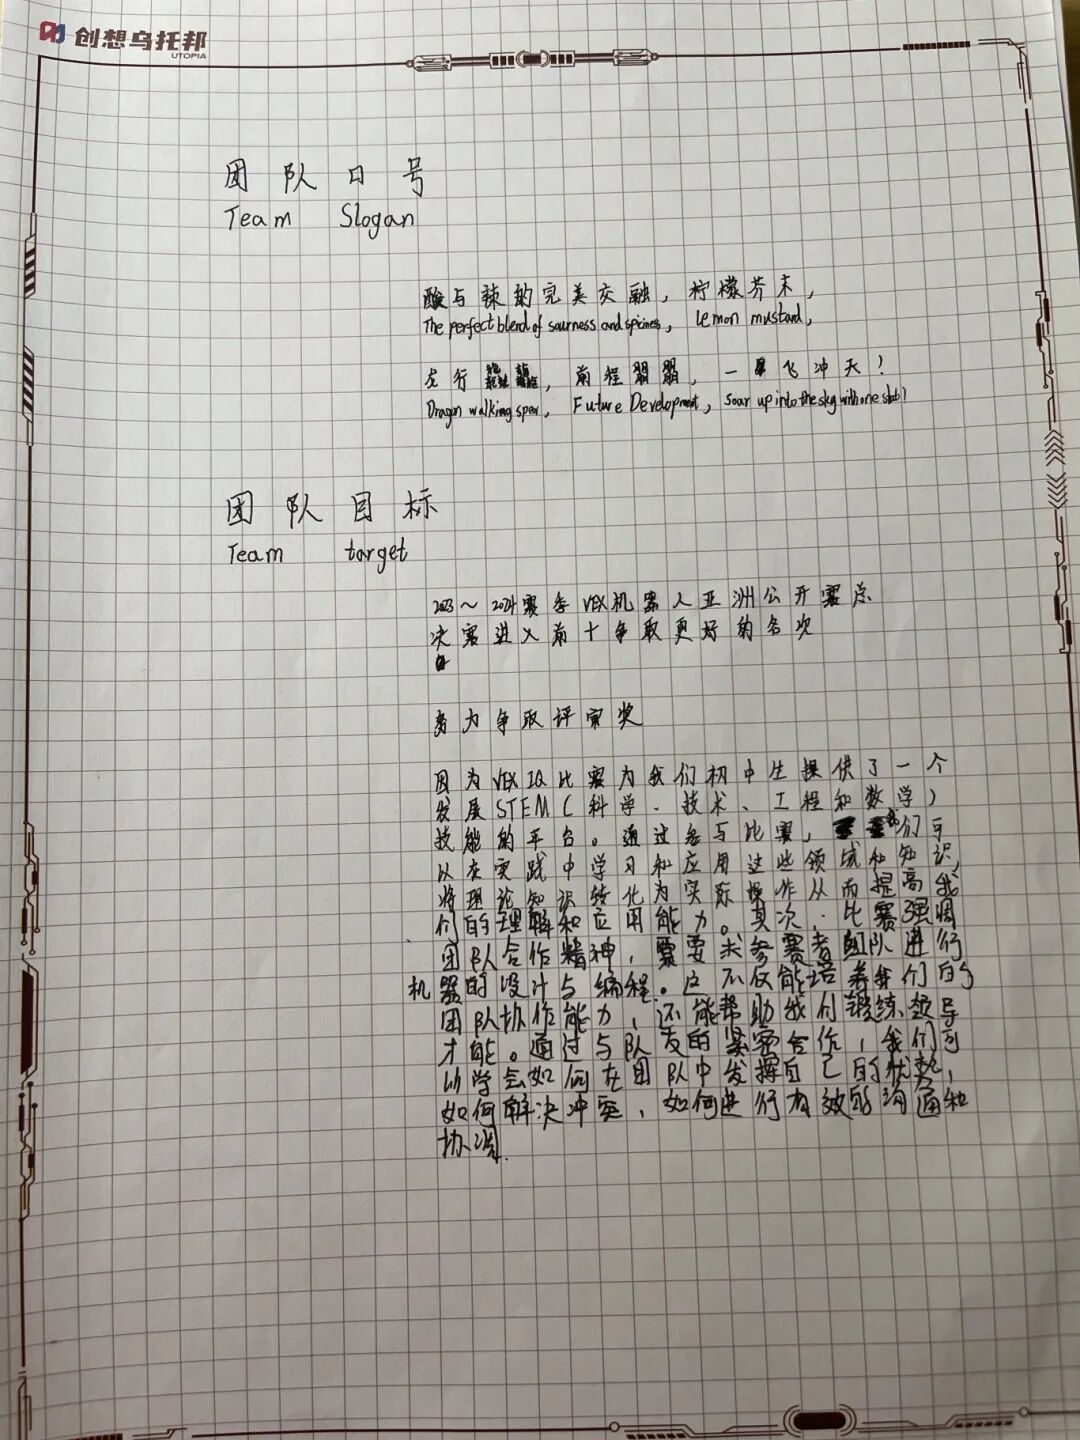 创想乌托邦
UTOPIA
团队口号
Team Slogan
酸与辣的完美交融，柠檬芥末，
The perfect blend of sourness and spiciness, Lemon mustard,
龙行龘龘，前程朤朤，一飞冲天！
Dragon walking spear, Future Development, Soar up into the sky with one stab!
团队目标
Team target
2023～2024赛季VEX机器人亚洲公开赛总
决赛进入前十争取更好的名次
努力争取评审奖
因为VEX IQ比赛为我们初中生提供了一个
发展STEM（科学、技术、工程和数学）
技能的平台。通过参与比赛，我们可
以在实践中学习和应用这些领域和知识，
将理论知识转化为实际操作从而提高我
们的理解和应用能力。其次，比赛强调
团队合作精神，需要求参赛者组队进行
机器的设计与编程。这不仅能培养我们的
团队协作能力，还能帮助我们锻炼领导
才能。通过与队友的紧密合作，我们可
以学会如何在团队中发挥自己的优势，
如何解决冲突，如何进行有效的沟通和
协调.